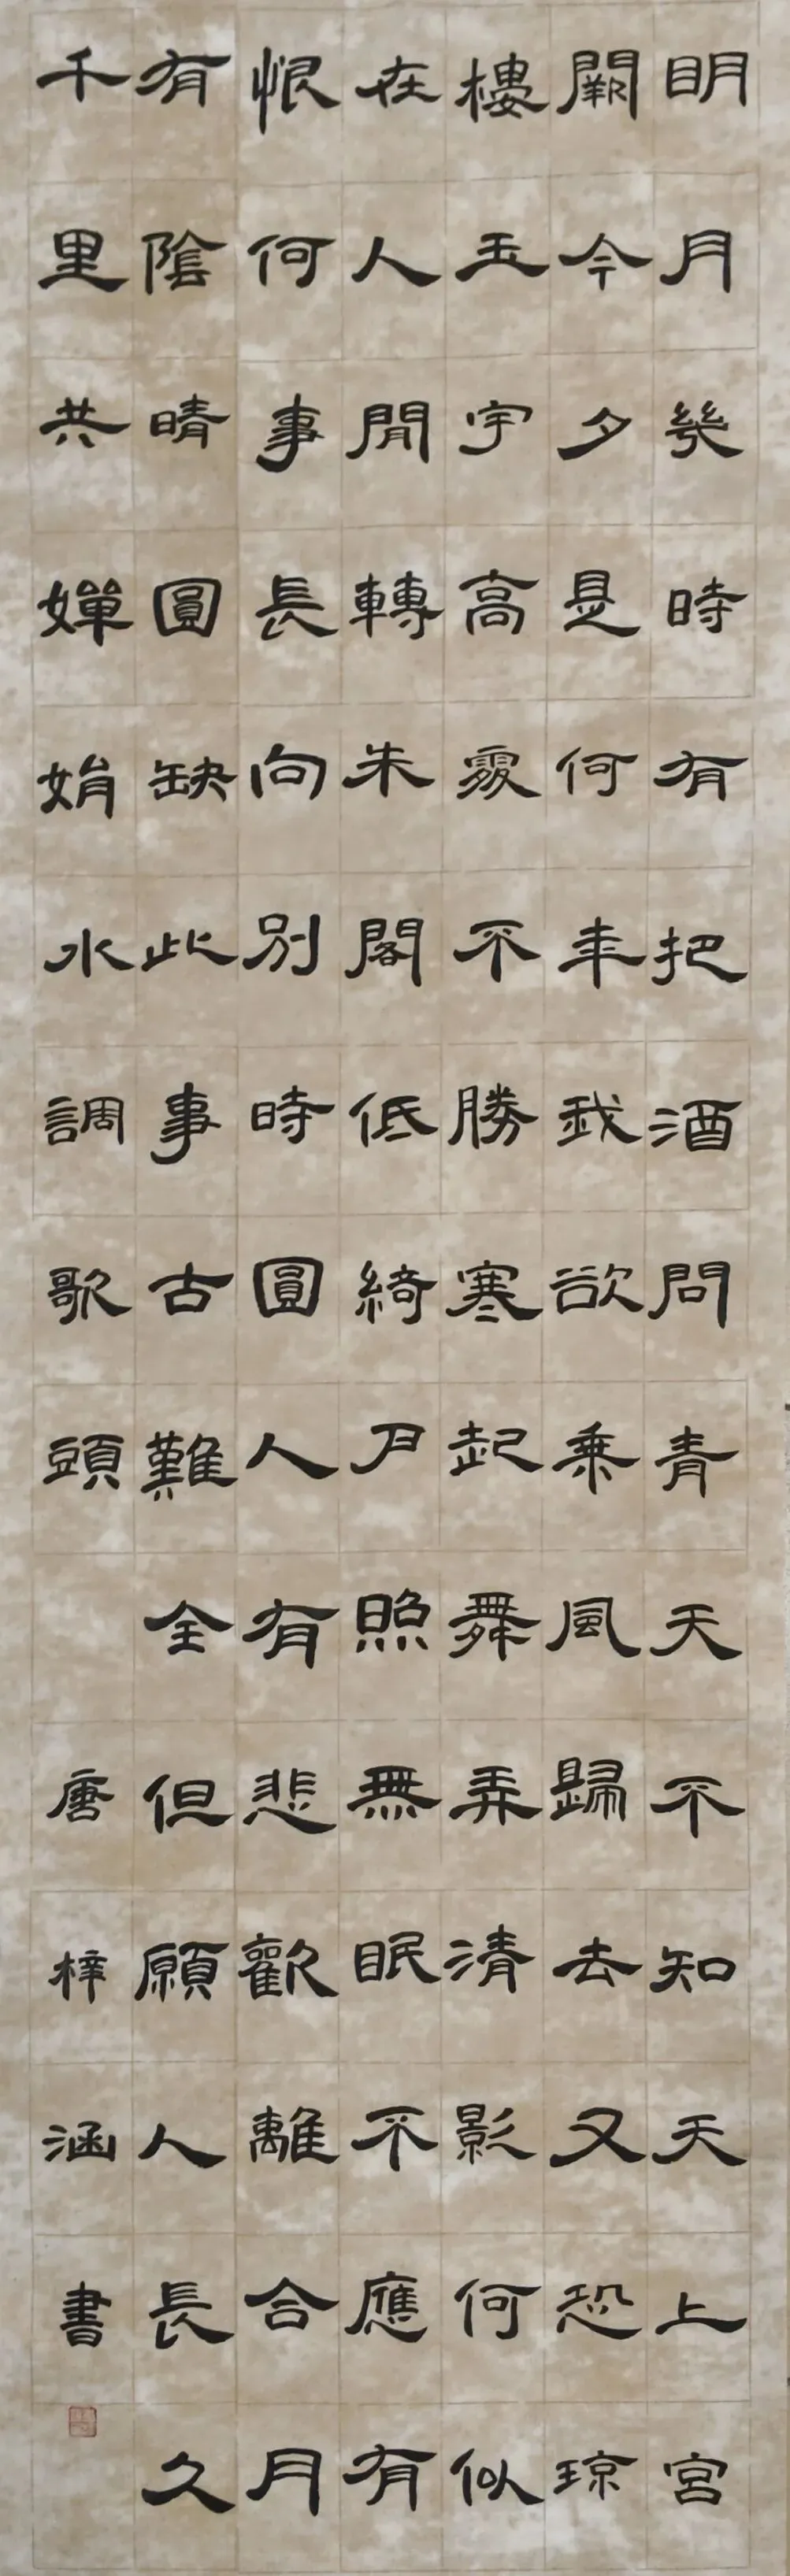 明月幾時有把酒問青天不知天上宮
闕今夕是何年我欲乘風歸去又恐琼
樓玉宇高處不勝寒起舞弄清影何似
在人間轉朱閣低綺戶照無眠不應有
恨何事長向別時圓人有悲歡離合月
有陰晴圓缺此事古難全但願人長久
千里共嬋娟水調歌頭
唐梓涵書